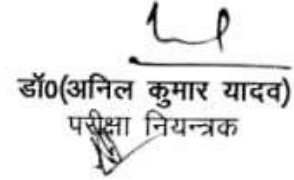 डॉ0(अनिल कुमार यादव)
परीक्षा नियन्त्रक